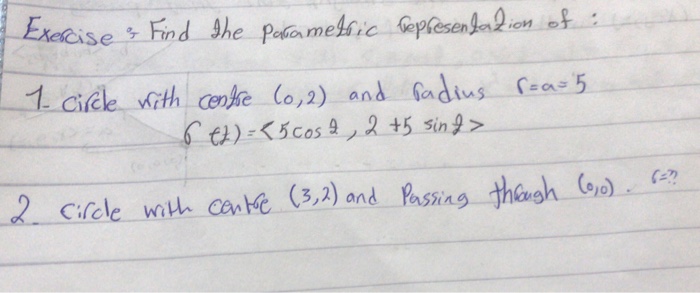 Exercise : Find the parametric representation of :
1- circle with centre (0,2) and radius r=a=5
r(t) = <5cos t, 2 +5 sin t>
2- circle with centre (3,2) and Passing through (0,0). r=??